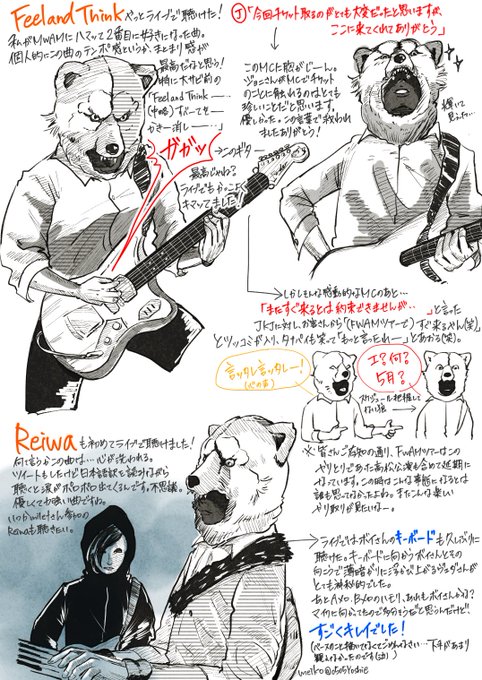 Feel and Think やっとライブで聴けた!
私がMWAMにハマッて2番目に好きになった曲。
個人的にこの曲のテンポ感というか、まとまり感が
最高だなと思う!
特に大サビ前の
「Feel and Think ー…
(中略)すべてを…
かき消しー…」
ガガッ
→このギター
最高じゃね?
ライブでもかっこよく
キマッてました!
J「今回チケット取るのがとても大変だったと思いますが、
ここに来てくれてありがとう」
このMCに胸がじーん。
ジョニさんがMCでチケット
のことに触れるのはとても
珍しいことだと思います。
優しかった。この言葉で救われ
ましたありがとう!
→しかしそんな感動的なMCのあと…
「またすぐ来るとは約束できませんが…」と言った
JKJに対し、お客さんから「(FWAMツアーで)すぐ来るやん(笑)」
とツッコミが入り、タナパイも笑って「もっと言ったれー」とあおる(笑)。
言ッタレ言ッタレー!
(心の声)
エ?何?
5月?
スケジュール把握して
ない狼
※皆さんご存知の通り、FWAMツアーはこの
やり取りのあった高松公演も含めて延期に
なっています。この時はこんな事態になるとは
誰も思ってなかったよね。またこんな楽しい
やり取りが見たいよー。
Reiwaも初めてライブで聴けました!
何て言うかこの曲は…心が洗われる。
ツイートもしたけど日本語訳を読みながら
聴くと涙がポロポロ出てくるんです。不思議。
優しくて力強い曲ですね。
いつかmiletさん参加の
Reiwaも聴きたい。
ライブではボイさんのキーボードも久しぶりに
聴けた。キーボードに向かうボイさんとその
向こうで薄暗がりに浮かび上がるジョダさんが
とても神秘的でした。
すごくキレイでした!
meiko@